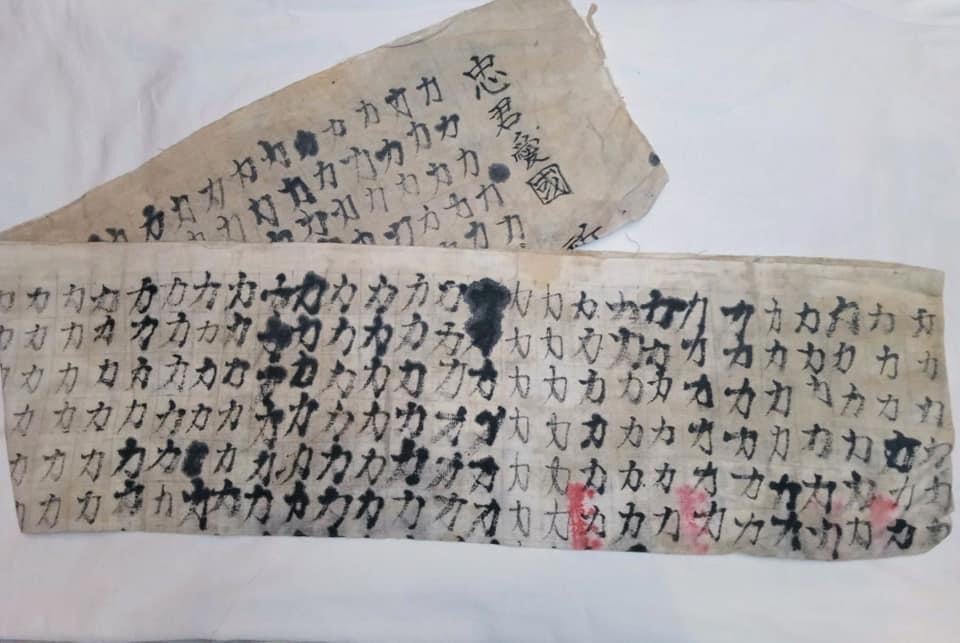 忠君愛國
力力力力力力力力力
力力力力力力力力力
力力力力力力
力力力力
力力
力力力力力力力力力力力力力力力力力力力力力力力力力力
力力力力力力力力力力力力力力力力力力力力力力力力力力
力力力力力力力力力力力力力力力力力力力力力力力力力力力
力力力力力力力力力力力力力力力力力力力力力力力力力力力
力力力力力力力力力力力力力力力力力力力力力力力力力力
力力力力力力力力力力力力力力力力力力力力力力力力力力